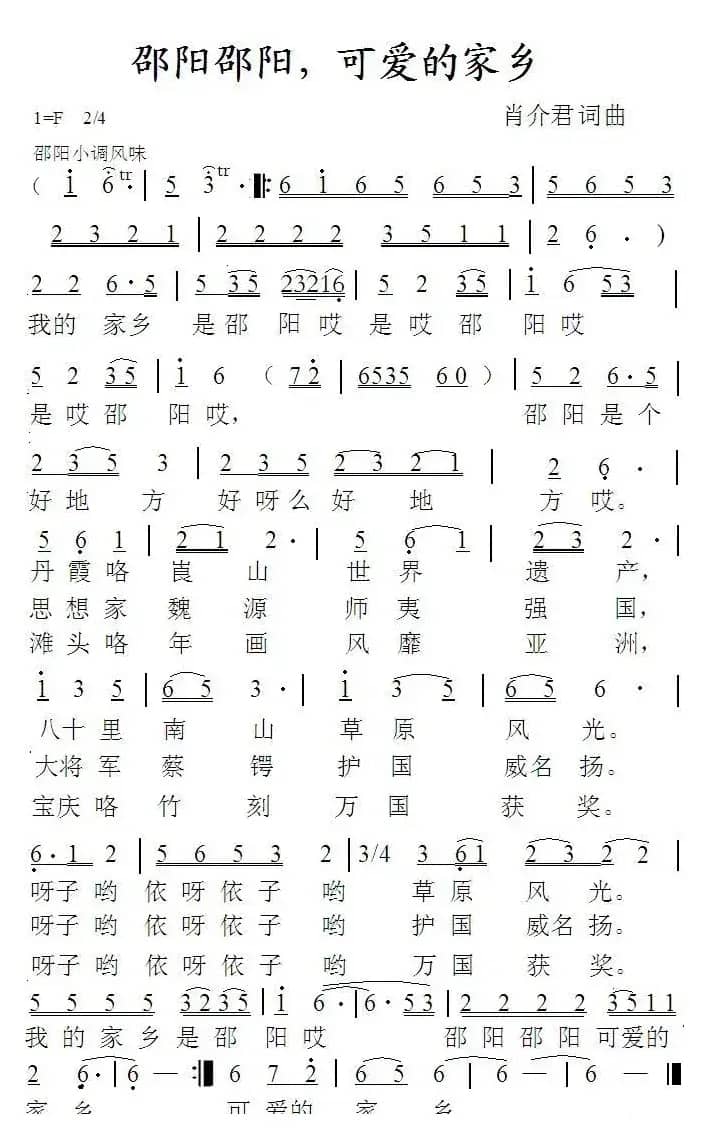 邵阳邵阳，可爱的家乡
1=F 2/4 肖介君词曲
邵阳小调风味
( 1 6 tr · | 5 3 tr · |: 6 1 6 5 6 6 5 3 | 5 6 5 3
2 3 2 1 | 2 2 2 2 3 5 1 1 | 2 6 · )
2 2 6 · 5 | 5 3 5 2 3 2 1 6 | 5 2 3 5 | 1 6 5 3
我的 家乡 是邵 阳哎 是哎 邵 阳哎
5 2 3 5 | 1 6 ( 7 2 | 6 5 3 5 6 0 ) | 5 2 6 · 5
是哎 邵 阳哎， 邵 阳 是 个
2 3 5 3 | 2 3 5 2 3 2 1 | 2 6 ·
好 地 方 好 呀 么 好 地 方 哎。
5 6 1 | 2 1 2 · | 5 6 1 | 2 3 2 ·
丹 霞 咯 崀 山 世 界 遗 产，
思 想 家 魏 源 师 夷 强 国，
滩 头 咯 年 画 风 靡 亚 洲，
1 3 5 | 6 5 3 · | 1 3 5 | 6 5 6 ·
八十 里 南 山 草 原 风 光。
大将 军 蔡 锷 护 国 威名 扬。
宝庆 咯 竹 刻 万 国 获 奖。
6 · 1 2 | 5 6 5 3 2 | 3/4 3 6 1 2 3 2 2 |
呀子 哟 依 呀 依 子 哟 草 原 风 光。
呀子 哟 依 呀 依 子 哟 护 国 威名 扬。
呀子 哟 依 呀 依 子 哟 万 国 获 奖。
5 5 5 5 3 2 3 5 | 1 6 · | 6 · 5 3 | 2 2 2 2 3 5 1 1
我 的 家 乡 是 邵 阳 哎 邵 阳 邵 阳 可爱的
2 6 · | 6 · :| 6 7 2 | 6 5 6 | 6 · ‖
家 乡 可 爱的 家 乡